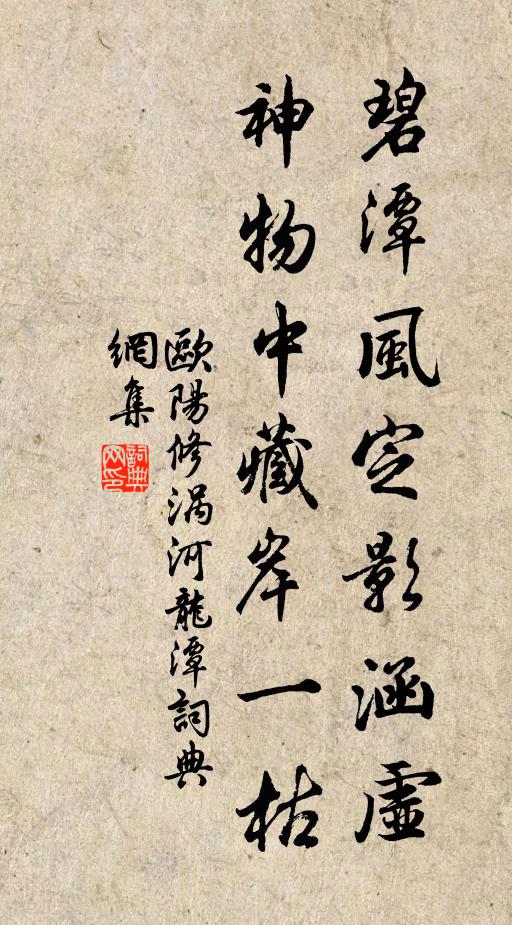 碧潭風定影涵虛
神物中藏岸一枯
歐陽修渦河龍潭詞典
網集
詞典
网印